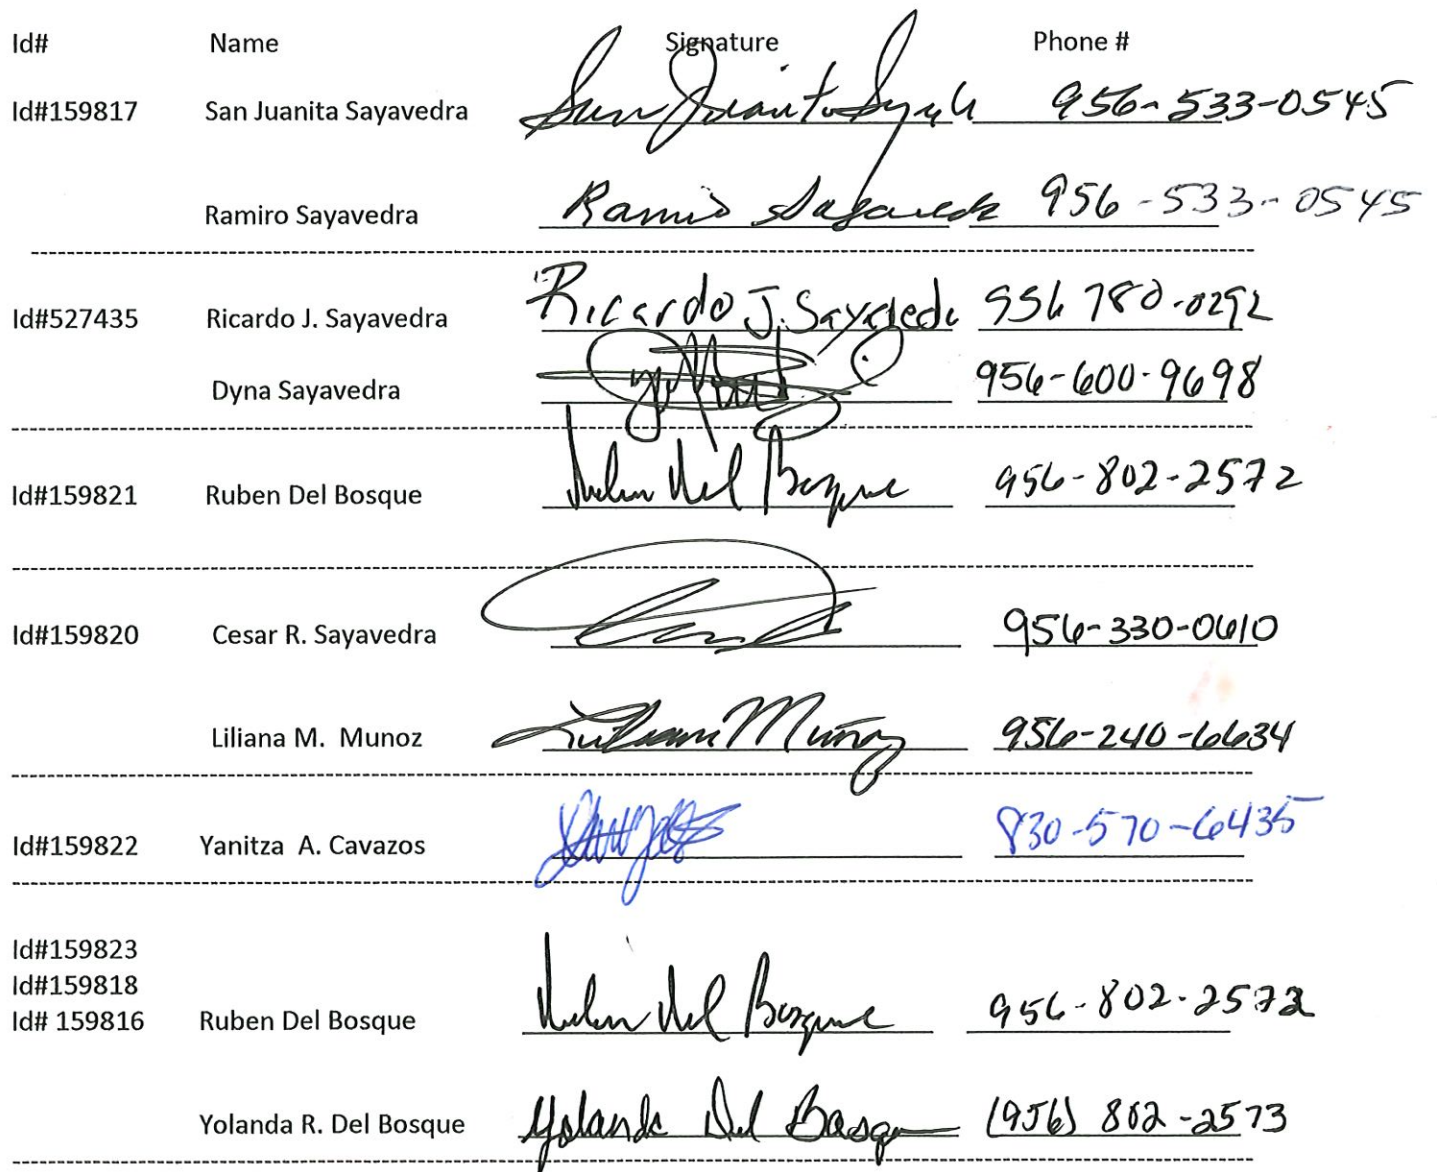 Id# Name Signature Phone #
Id#159817 San Juanita Sayavedra San Juanita 956-533-0545
Ramiro Sayavedra Ramiro Sayavedra 956-533-0545
Id#527435 Ricardo J. Sayavedra Ricardo J. Sayavedra 956 780-0292
Dyna Sayavedra 956-600-9698
Id#159821 Ruben Del Bosque Ruben Del Bosque 956-802-2572
Id#159820 Cesar R. Sayavedra 956-330-0610
Liliana M. Munoz Liliana Muñoz 956-240-6634
Id#159822 Yanitza A. Cavazos 830-570-6435
Id#159823
Id#159818
Id# 159816 Ruben Del Bosque Ruben Del Bosque 956-802-2572
Yolanda R. Del Bosque Yolanda Del Bosque (956) 802-2573